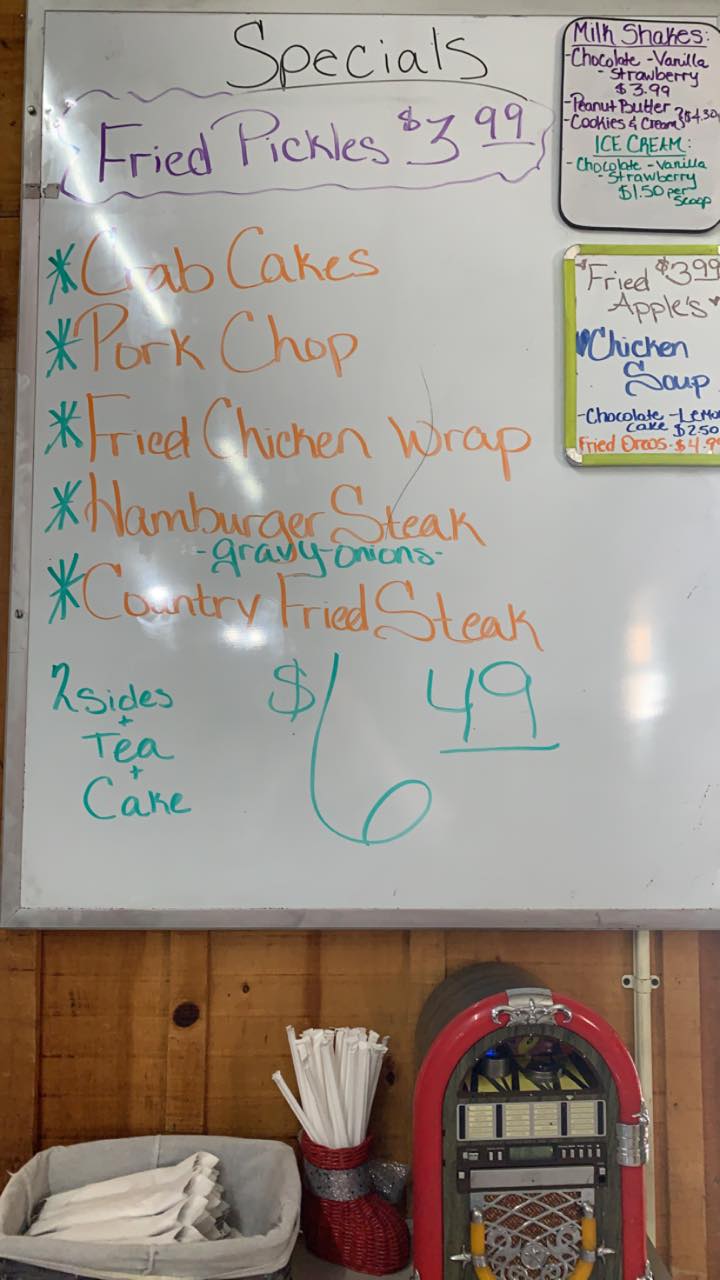 Specials
Fried Pickles $3 99
*Crab Cakes
*Pork Chop
*Fried Chicken Wrap
*Hamburger Steak
-gravy-onions-
*Country Fried Steak
2 sides
+
Tea
+
Cake
$6 49
Milk Shakes:
-Chocolate -Vanilla
-Strawberry
$3.99
-Peanut Butter
-Cookies & Cream
ICE CREAM:
-Chocolate -Vanilla
-Strawberry
$1.50 per
Scoop
Fried $3 99
Apple's
Chicken
Soup
-Chocolate
Cake $2.50
Fried Oreos-